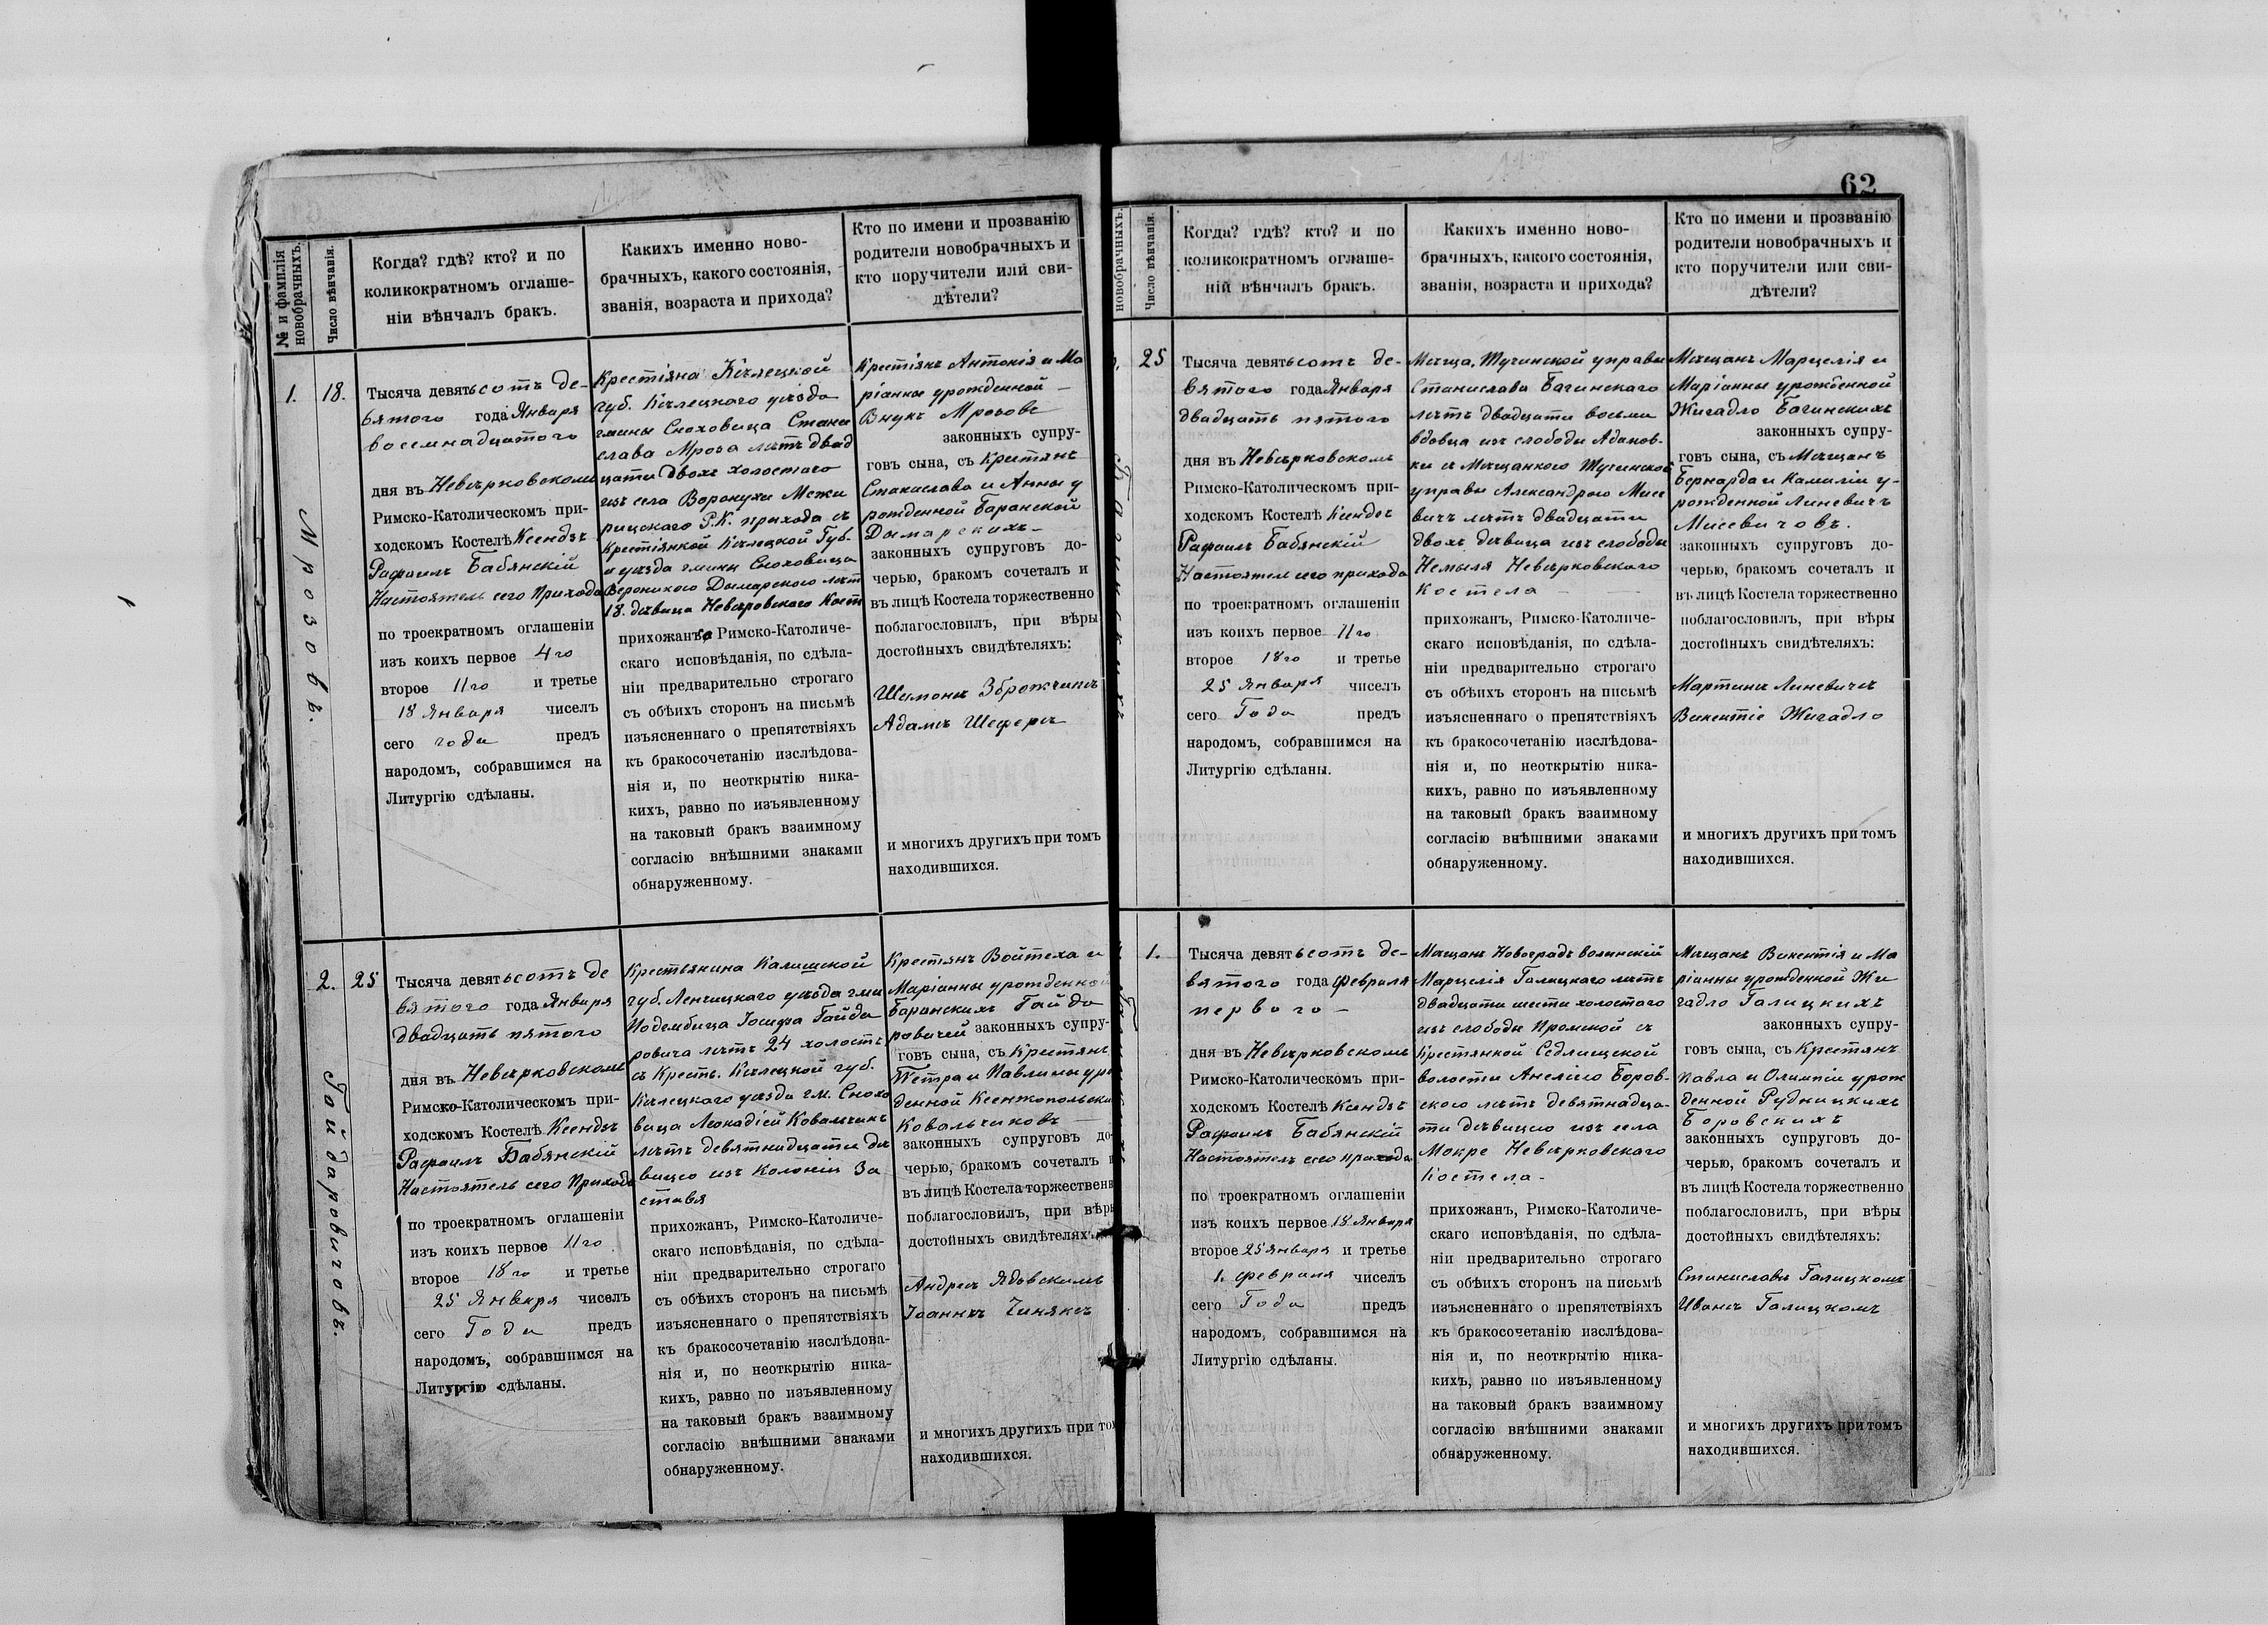 62
№ и фамилія
новобрачныхъ.
Число вѣнчанія.
Когда? гдѣ? кто? и по
коликократномъ оглаше-
ніи вѣнчалъ бракъ.
Какихъ именно ново-
брачныхъ, какого состоянія,
званія, возраста и прихода?
Кто по имени и прозванію
родители новобрачныхъ и
кто поручители или сви-
дѣтели?
1.
Мрозовъ.
18.
Тысяча девятьсотъ де-
вятого года Января
восемнадцатого
дня въ Невѣрковскомъ
Римско-Католическомъ при-
ходскомъ Костелѣ Ксендзъ
Рафаилъ Бабянскій
Настоятель сего Прихода
по троекратномъ оглашеніи
изъ коихъ первое 4го
второе 11го и третье
18 Января чиселъ
сего года предъ
народомъ, собравшимся на
Литургію сдѣланы.
Крестіяна Кѣлецкой
Губ. Кѣлецкого уѣзда
гмины Сноховица Стани
слава Мроза лѣтъ двад
цати двохъ холостого
изъ села Воронухи Межи
рицкаго Р.К. прихода съ
Крестіянкой Кѣлецкой Губ-
и уѣзда гмины Сноховица
Вероникою Дымарского лѣт
18. дѣвица Невѣровского Кост
прихожанъ Римско-Католиче-
скаго исповѣданія, по сдѣла-
ніи предварительно строгаго
съ обѣихъ сторонъ на письмѣ
изъясненнаго о препятствіяхъ
къ бракосочетанію изслѣдова-
нія и, по неоткрытію ника-
кихъ, равно по изъявленному
на таковый бракъ взаимному
согласію внѣшними знаками
обнаруженному.
Крестіянъ Антонія и Ма
ріанны урожденной
Внукъ Мрозовъ
законныхъ супру-
говъ сына, съ Крестянъ
Станислава и Анны у
рожденной Баранской
Дымарскихъ
законныхъ супруговъ до-
черью, бракомъ сочеталъ и
въ лицѣ Костела торжественно
поблагословилъ, при вѣры
достойныхъ свидѣтеляхъ:
Шимонъ
Адамъ Шеферъ
и многихъ другихъ при томъ
находившихся.
2.
Гайдаровичовъ.
25
Тысяча девятьсотъ де
вятого года Января
двадцать пятого
дня въ Невѣрковскомъ
Римско-Католическомъ при-
ходскомъ Костелѣ Ксендзъ
Рафаилъ Бабянскій
Настоятель сего Прихода
по троекратномъ оглашеніи
изъ коихъ первое 11го
второе 18го и третье
25 Января чиселъ
сего Года предъ
народомъ, собравшимся на
Литургію сдѣланы.
Крестьянина Калишской
губ. Ленчицкого уѣзда гми
Подембица Іосифа Гайда
ровича лѣтъ 24 холостъ
съ Кресть. Кѣлецкой губ.
Кѣлецкого уѣзда гм. Снохо
вица Леокадіей Ковальчикъ
лѣтъ девятнадцати дѣ
вицею изъ Колоніи За
ставя
прихожанъ, Римско-Католиче-
скаго исповѣданія, по сдѣла-
ніи предварительно строгаго
съ обѣихъ сторонъ на письмѣ
изъясненнаго о препятствіяхъ
къ бракосочетанію изслѣдова-
нія и, по неоткрытію ника-
кихъ, равно по изъявленному
на таковый бракъ взаимному
согласію внѣшними знаками
обнаруженному.
Крестянъ Войтеха и
Маріанны урожденной
Баранскихъ Гайда
ровичей законныхъ супру-
говъ сына, съ Крестянъ
Петра и Павлины уро
жденной
Ковальчиковъ
законныхъ супруговъ до-
черью, бракомъ сочеталъ и
въ лицѣ Костела торжественн
поблагословилъ, при вѣры
достойныхъ свидѣтеляхъ
Андрей Ядовскимъ
Іоаннъ Чинякъ
и многихъ другихъ при том
находившихся.
новобрачныхъ.
Число вѣнчанія.
Когда? гдѣ? кто? и по
коликократномъ оглаше-
ній вѣнчалъ бракъ.
Какихъ именно ново-
брачныхъ, какого состоянія,
званія, возраста и прихода?
Кто по имени и прозванію
родители новобрачныхъ и
кто поручители или сви-
дѣтели?
25
Тысяча девятьсотъ де-
вятого года Января
двадцать пятого
дня въ Невѣрковскомъ
Римско-Католическомъ при-
ходскомъ Костелѣ Ксендзъ
Рафаилъ Бабянскій
Настоятель сего прихода
по троекратномъ оглашеніи
изъ коихъ первое 11го
второе 18го и третье
25 Января чиселъ
сего Года предъ
народомъ, собравшимся на
Литургію сдѣланы.
Мѣща. Тучинской управы
Станислава Багинскаго
лѣтъ двадцати восьми
вдовца изъ слободы Адамов-
ки съ Мѣщанкою Тучинской
управы Александрою Мисе
вичъ лѣтъ двадцати
двохъ дѣвица изъ слободы
Немыля Невѣрковскаго
Костела
прихожанъ, Римско-Католиче-
скаго исповѣданія, по сдѣла-
ніи предварительно строгаго
съ обѣихъ сторонъ на письмѣ
изъясненнаго о препятствіяхъ
къ бракосочетанію изслѣдова-
нія и, по неоткрытію ника-
кихъ, равно по изъявленному
на таковый бракъ взаимному
согласію внѣшними знаками
обнаруженному.
Мѣщанъ Марцелія и
Маріанны урожденной
Жигадло Багинскихъ
законныхъ супру-
говъ сына, съ Мѣщанъ
Бернарда и Камиліи у-
рожденной Линевичъ
Мисевичовъ.
законныхъ супруговъ до-
черью, бракомъ сочеталъ и
въ лицѣ Костела торжественно
поблагословилъ, при вѣры
достойныхъ свидѣтеляхъ:
Мартинъ Линевичъ
Викентіе Жигадло
и многихъ другихъ при томъ
находившихся.
1.
Тысяча девятьсотъ де-
вятого года февраля
первого
дня въ Невѣрковскомъ
Римско-Католическомъ при-
ходскомъ Костелѣ Ксендзъ
Рафаилъ Бабянскій
Настоятель сего прихода
по троекратномъ оглашеніи
изъ коихъ первое 18 Января
второе 25 Января и третье
1. февраля чиселъ
сего Года предъ
народомъ, собравшимся на
Литургію сдѣланы.
Мѣщанъ Новоградъ волинскій
Марцелія Галицкого лѣтъ
двадцати шести холостого
изъ слободы Промской съ
Крестянкой Седлищской
волости Анеліею Боров-
скою лѣтъ девятнадца-
ти дѣвицею изъ села
Мокре Невѣрковскаго
Костела
прихожанъ, Римско-Католиче-
скаго исповѣданія, по сдѣла-
ніи предварительно строгаго
съ обѣихъ сторонъ на письмѣ
изъясненнаго о препятствіяхъ
къ бракосочетанію изслѣдова-
нія и, по неоткрытію ника-
кихъ, равно по изъявленному
на таковый бракъ взаимному
согласію внѣшними знаками
обнаруженному.
Мѣщанъ Викентія и Ма
ріанны урожденной Жи
гадло Галицкихъ
законныхъ супру-
говъ сына, съ Крестянъ
Павла и Олимпіи урож
денной Рудницкихъ
Боровскихъ
законныхъ супруговъ до-
черью, бракомъ сочеталъ и
въ лицѣ Костела торжественно
поблагословилъ, при вѣры
достойныхъ свидѣтеляхъ:
Станиславъ Галицкомъ
Иванъ Галицкомъ
и многихъ другихъ при томъ
находившихся.